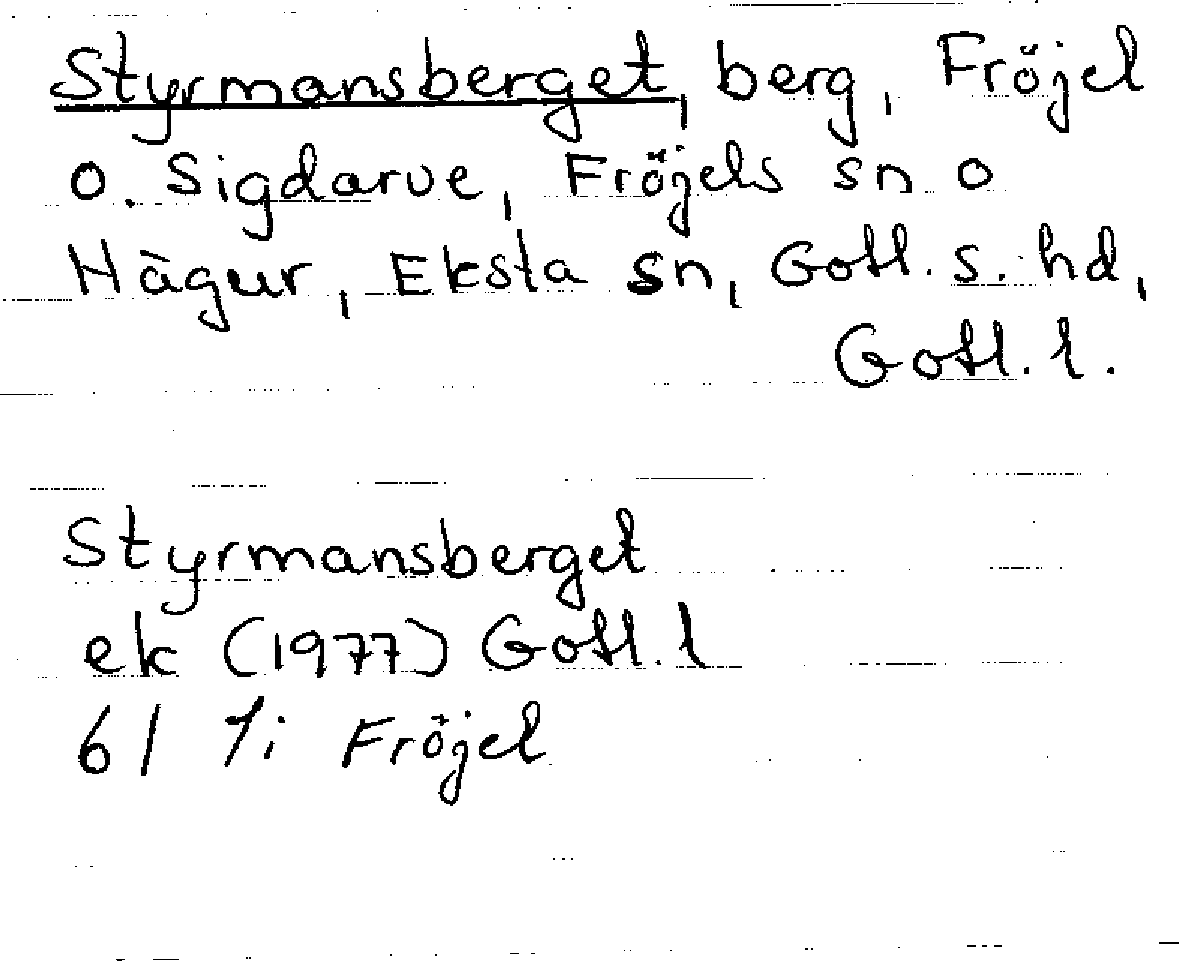 Styrmansberget, berg, Fröjel
o. Sigdarve, Fröjels sn o
Hägur, Eksta sn, Gotl. s. hd,
Gotl. l.
Styrmansberget
ek (1977) Gotl. l
6 I 7i Fröjel